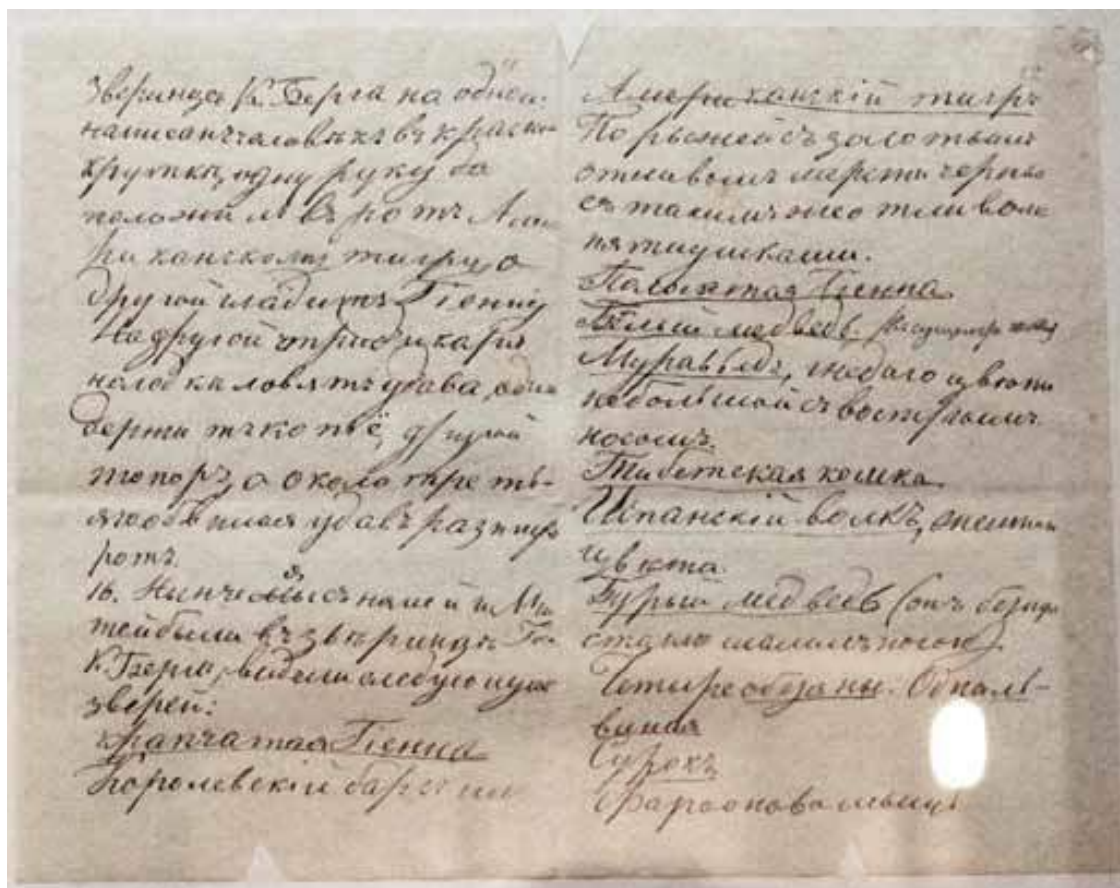 звѣринца К. Берга на одной
написанъ человѣкъ въ красной
курткѣ, одну руку онъ
положилъ въ ротъ Аме
риканскому тигру, а
другой гладитъ Гіенну
На другой три
ловятъ удава, одинъ
держитъ копьё, другой
топоръ, а около треть-
яго обвился удавъ разинувъ
ротъ.
16. Нынче я съ няней и Ми
тей были въ звѣринцѣ Г-на
К. Берга, видели следующихъ
зверей:
Крапчатая Гіенна
Королевскій барсъ или
Американскій тигръ
По рыжей съ золотымъ
отливомъ шерсти черные
съ такимъ же отливомъ
пятнушками.
Полосатая Гіенна
Бѣлый медведь.
Муравьедъ, цвета
небольшой съ вострымъ
носомъ.
Тибетская кошка
Испанскій волкъ,
цвета.
Бурый медведь (онъ безпре
станно носою).
Четыре обезьяны. Одна ль-
виная
Сурокъ
Фараонова мышь